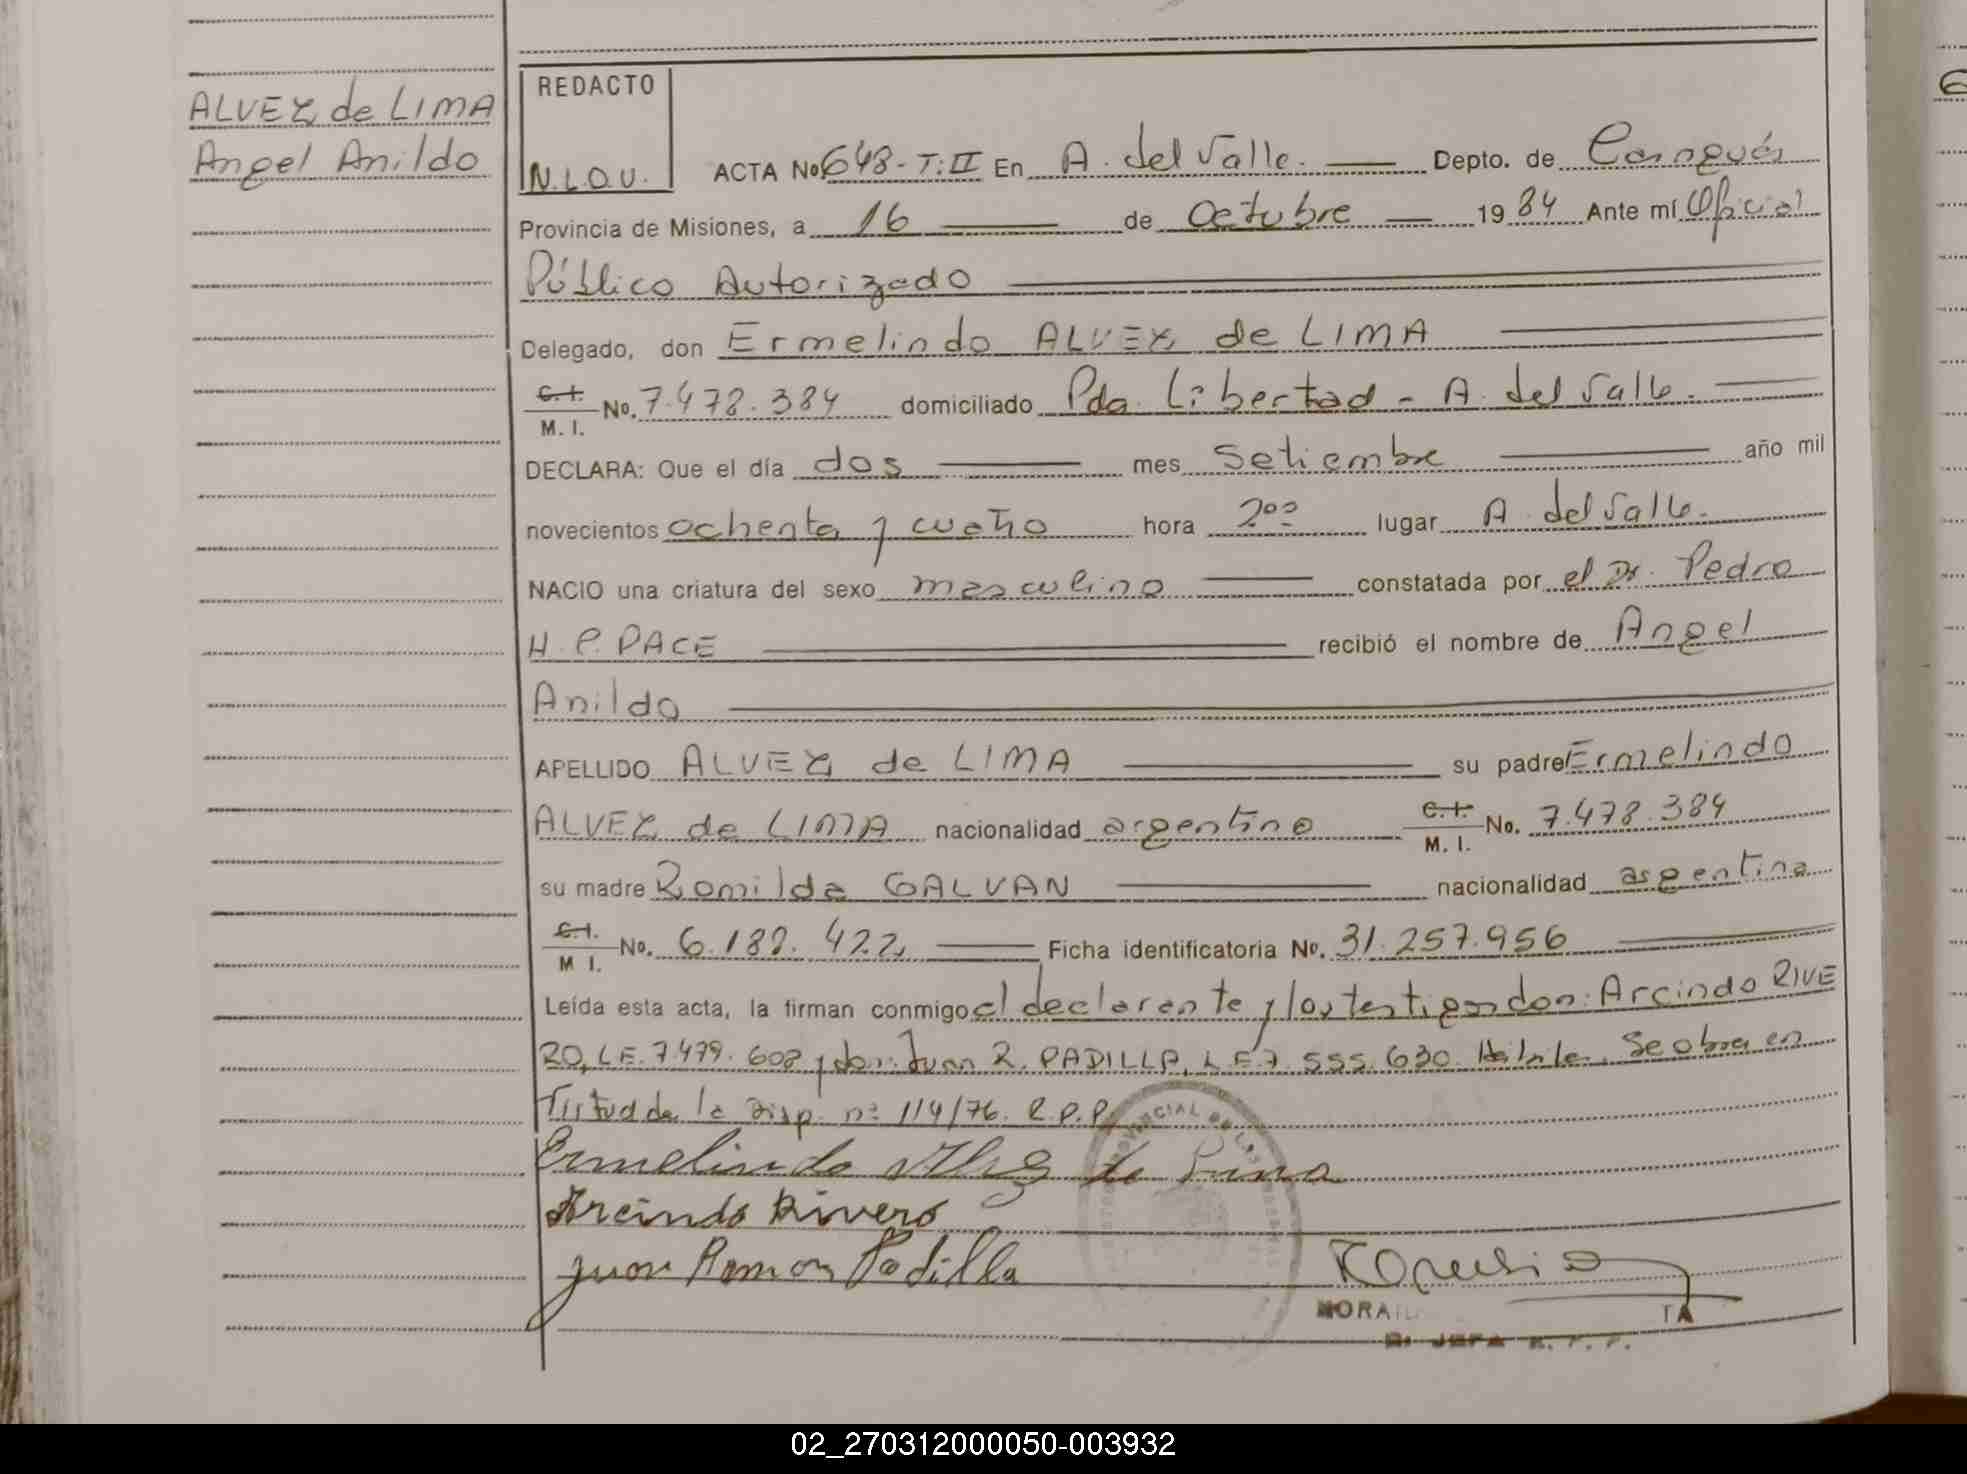 ALVEZ de LIMA
Angel Anildo
REDACTO
N.L.O.V.
ACTA No 648-T:II En A. del Valle. Depto. de Cainguás
Provincia de Misiones, a 16 de Octubre 19 84 Ante mí Oficial
Público Autorizado
Delegado, don Ermelindo ALVEZ de LIMA
C.I.
M. I. No. 7.478.384 domiciliado Pda. Libertad - A. del Valle.
DECLARA: Que el día dos mes Setiembre año mil
novecientos ochenta y cuatro hora 2°° lugar A. del Valle.
NACIO una criatura del sexo masculino constatada por el Dr. Pedro
H. P. PACE recibió el nombre de Angel
Anildo
APELLIDO ALVEZ de LIMA su padre Ermelindo
ALVEZ de LIMA nacionalidad argentino C.I.
M. I. No. 7.478.384
su madre Romilda GALVAN nacionalidad argentina
C.I.
M I. No. 6.182.422 Ficha identificatoria No. 31.257.956
Leída esta acta, la firman conmigo el declarante y los testigos don: Arcindo RIVE
RO, L.E. 7.479.602 y don: Juan R. PADILLA, L.E. 7.555.630. Se obra en
Virtud de la Disp. n° 114/76. R.P.P.
Ermelindo Alvez de Lima
Arcindo Rivero
Juan Ramon Padilla
TA
JEFA R. P. P.
02_270312000050-003932